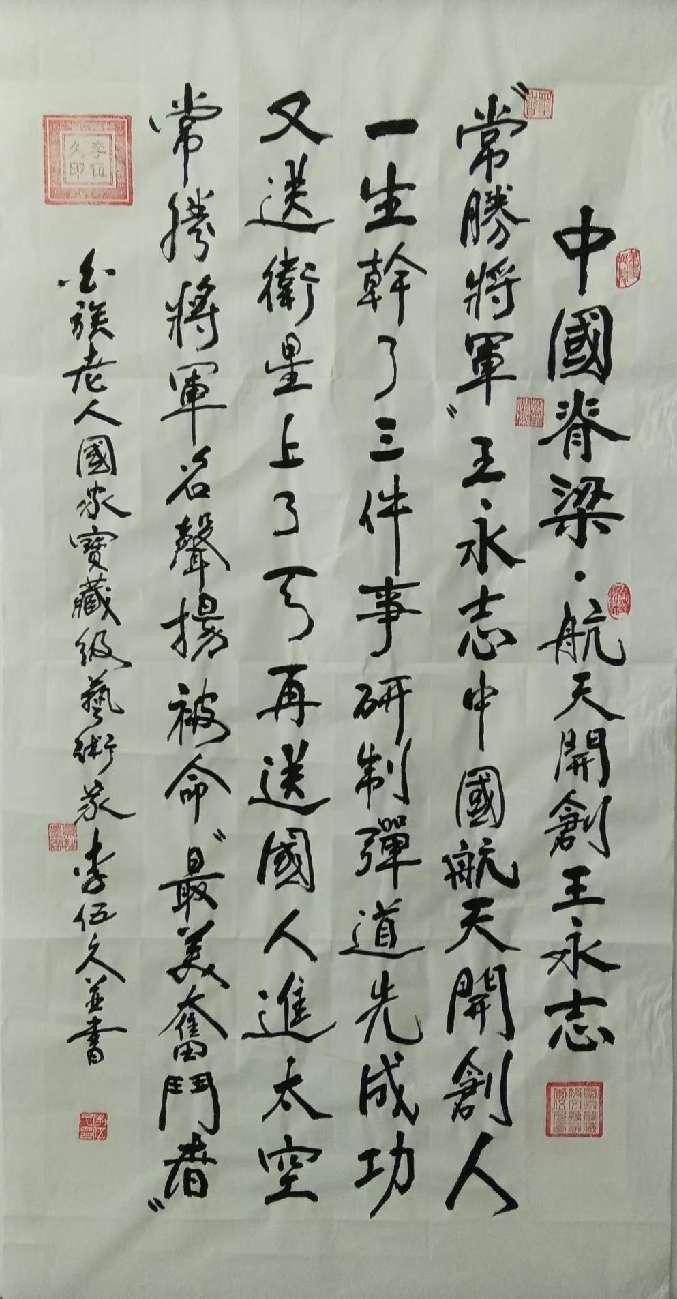 中國脊梁·航天開創王永志
"常勝將軍"王永志中國航天開創人
一生幹了三件事研制彈道先成功
又送衛星上了天再送國人進太空
常勝將軍名聲揚被命"最美奮鬥者"
白族老人國家寶藏級藝術家李伍久並書
李伍久印